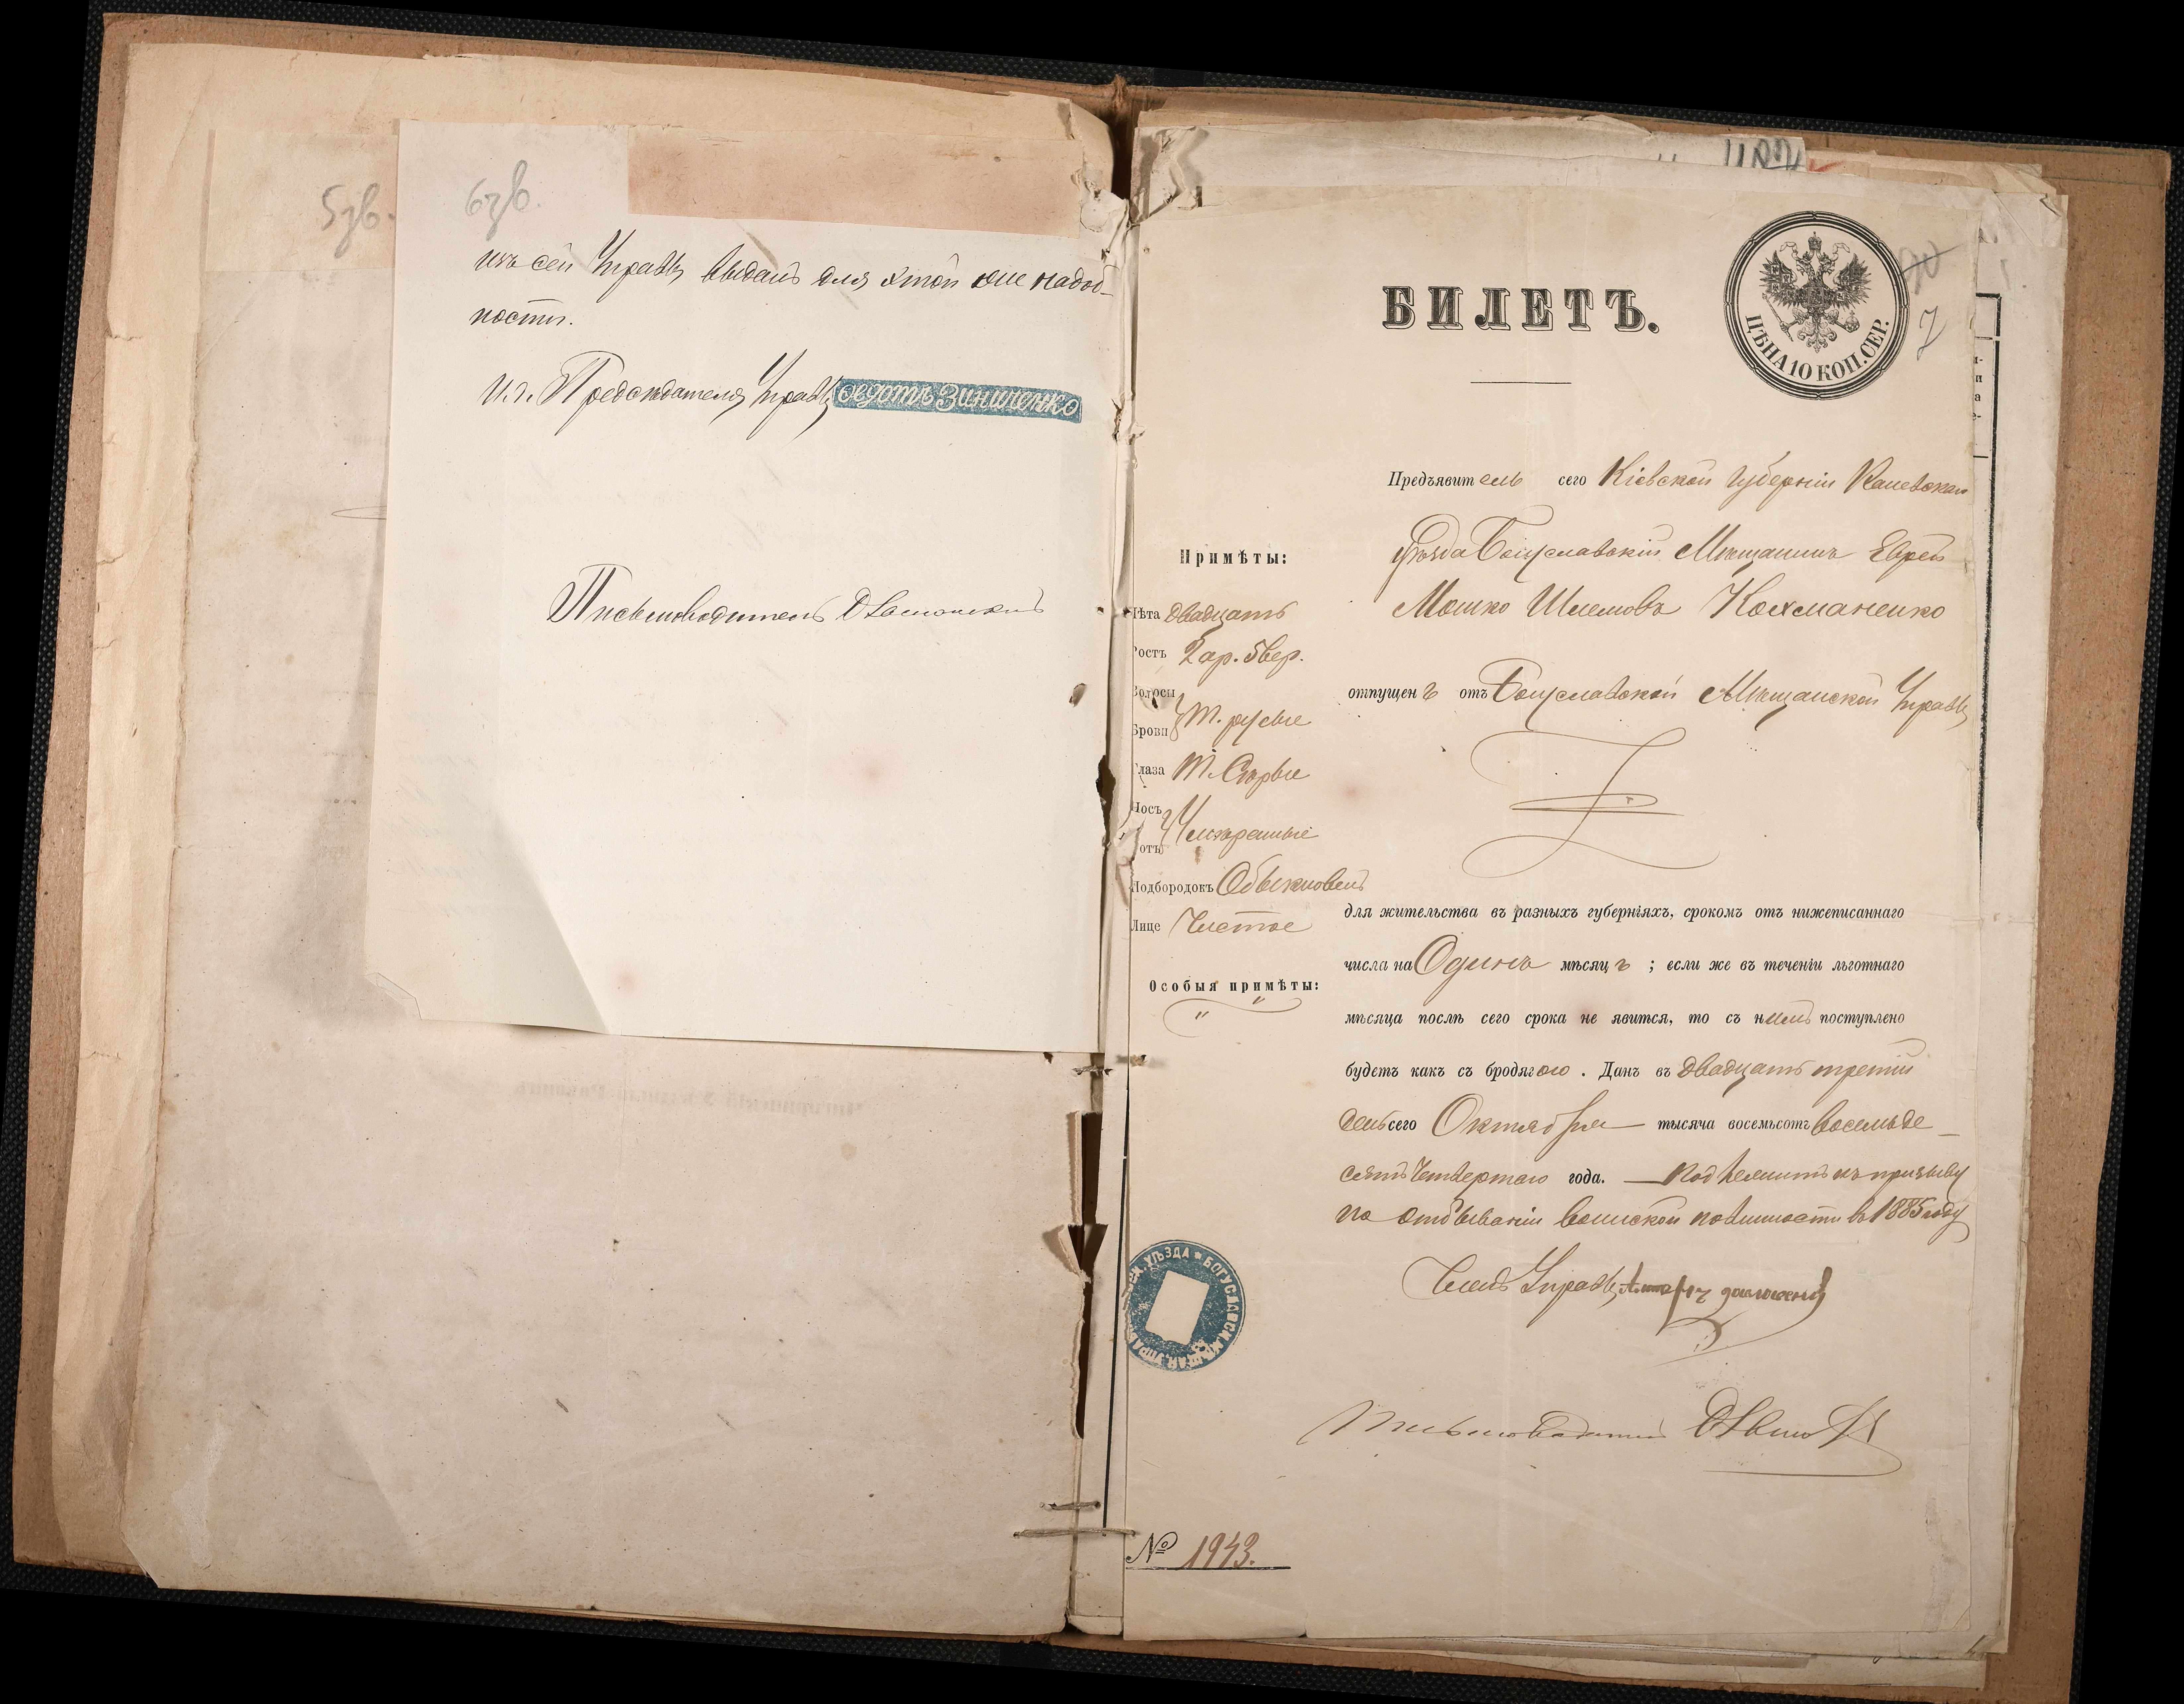 5зв.
6зв.
изъ сей Управы выданъ для этой же надоб-
ности.
И. д. Предсѣдателя Управы Ѳедотъ Зиниченко
Письмоводитель
БИЛЕТЪ.
ЦѢНА 10 КОП. СЕР.
7
Предъявитель сего Кіевской губерніи Каневскаго
уѣзда Богуславскій Мѣщанинъ Еврей
Мошко Шлемовъ Кохманенко
отпущенъ отъ Богуславской Мѣщанской Управы
Примѣты:
Лѣта двадцать
Ростъ 2 ар. 5 вер.
Волосы
Брови т. русые
Глаза т. Сѣрые
Носъ
Ротъ Умѣренные
Подбородокъ Обыкновенъ
Лице Чистое
Особыя примѣты:
" "
для жительства въ разныхъ губерніяхъ, срокомъ отъ нижеписаннаго
числа на Одинъ мѣсяцъ ; если же въ теченіи льготнаго
мѣсяца послѣ сего срока не явится, то съ нимъ поступлено
будетъ какъ съ бродягою . Данъ въ двадцать третій
день сего Октября тысяча восемьсотъ восемьде-
сятъ Четвертаго года. — Подлежитъ къ призыву
по отбыванію воинской повинности въ 1885 году
Членъ Управы
Письмоводитель
УѢЗДА * БОГУСЛАВСК. МѢЩАН. УПРАВ
№ 1943.